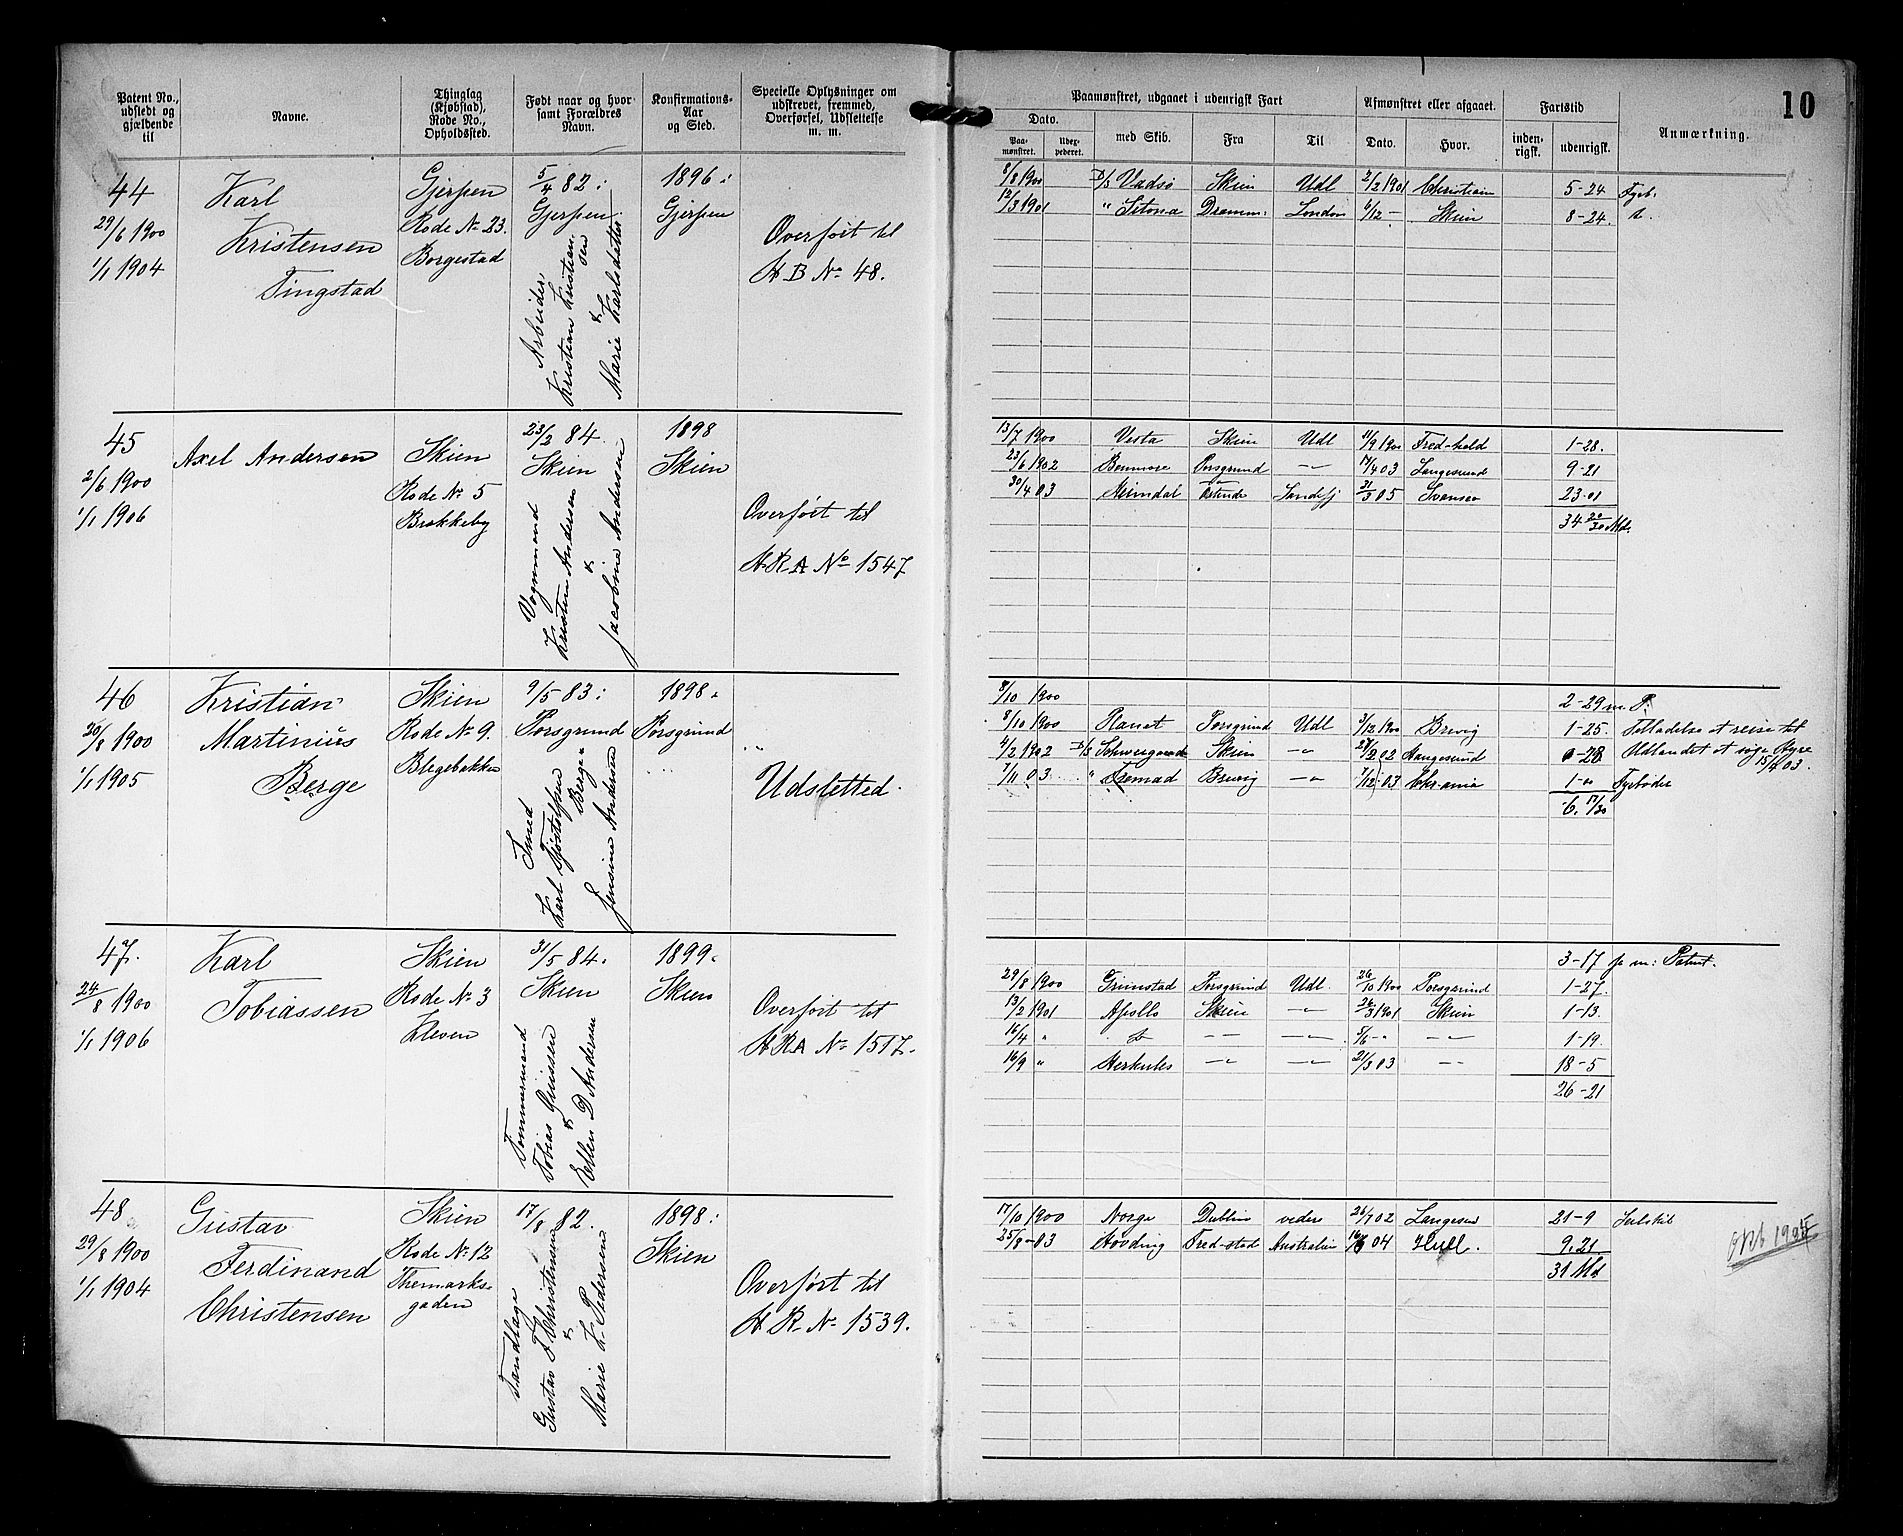 10
Patent No., udstedt og gjældende til
Navne.
Thinglag (Kjøbstad), Rode No., Opholdssted.
Født naar og hvor samt Forældres Navn.
Konfirmations-Aar og Sted.
Specielle Oplysninger om udskrevet, fremmed, Overførsel, Udslettelse m. m.
Paamønstret, udgaaet i udenrigsk Fart
Dato.
Paamønstret.
Udexpederet.
med Skib.
Fra
Til
Afmønstret eller afgaaet.
Dato.
Hvor.
Fartstid
indenrigsk.
udenrigsk.
Anmærkning.
44
29/6 1900
1/1 1904
Karl
Kristensen
Tingstad
Gjerpen
Rode No 23.
Borgestad
5/4 82:
Gjerpen.
Arbeider
Kristian Kristiansen
&
Marie Karlsdatter
1896:
Gjerpen
Overført til
H B No 48.
8/8 1900 D/S Vadsø Skien Udl 2/2 1901 Christian 5-24 Fyrb.
12/3 1901 " Sitona Dramm: London 6/12 - Skien 8-24.
45
2/6 1900
1/1 1906
Axel Andersen
Skien
Rode No 5
Brekkeby
23/2 84.
Skien
Vognmand
Kristen Andersen
&
Jacobine Andersen
1898
Skien
Overført til
H R A No 1547
13/7 1900 Vesta Skien Udl 11/9 1900 Fred-hald 1-28.
23/6 1902 Benmore Porsgrund -"- 17/4 03 Langesund 9-21
30/4 03 Heimdal Ostende Sandefj 31/3 05 Svansea 23-01
34 20/30 Md.
46
30/8 1900
1/1 1905
Kristian
Martinius
Berge
Skien
Rode No 9.
Blegebakken
9/5 83:
Porsgrund
Smed
Karl Tjøstolfsen
Berge
Jensine Andersen
1898.
Porsgrund
Udsletted.
8/10 1900 2-29 m. P.
8/10 1900 Planet Porsgrund Udl 3/12 1900 Brevig 1-25. Tilladelse at reise til
4/2 1902 D/S Schweigaard Skien -"- 02 Langesund 0-28 Udlandet at søge Hyre
15/4 03.
7/11 03. " Fremad Brevig -"- 7/12 03 Chr.ania 1-00 Fyrbøder
6. 17/30
47.
24/8 1900
1/1 1906
Karl
Tobiassen
Skien
Rode No 3
Kleven
31/5 84.
Skien
Tømmermand
Tobias
&
Ellen D Andersen
1899.
Skien
Overført til
H R A No 1517.
3-17 f m: Patent.
29/8 1900 Grimstad Porsgrund Udl. 26/10 1900 Porsgrund 1-27.
13/2 1901 Apollo Skien -"- 26/3 1901 Skien 1-13.
16/4 " do -"- -"- 5/6 -"- -"- 1-19.
16/9 " Herkules -"- -"- 21/3 03 -"- 18-5
26-21
48.
29/8 1900
1/1 1904
Gustav
Ferdinand
Christensen
Skien
Rode No 12
Themarks-
gaden
17/8 82.
Tandlæge
Gustav F Christensen
&
Marie K. Pedersen
1898:
Skien
Overført til
H R No 1539.
17/10 1900 Norge Dublin videre 26/7 02 Langesund 21-9 Seilskib
25/8-03 Høvding Fred-stad Australien 04 Hull. 9.21
31 Md